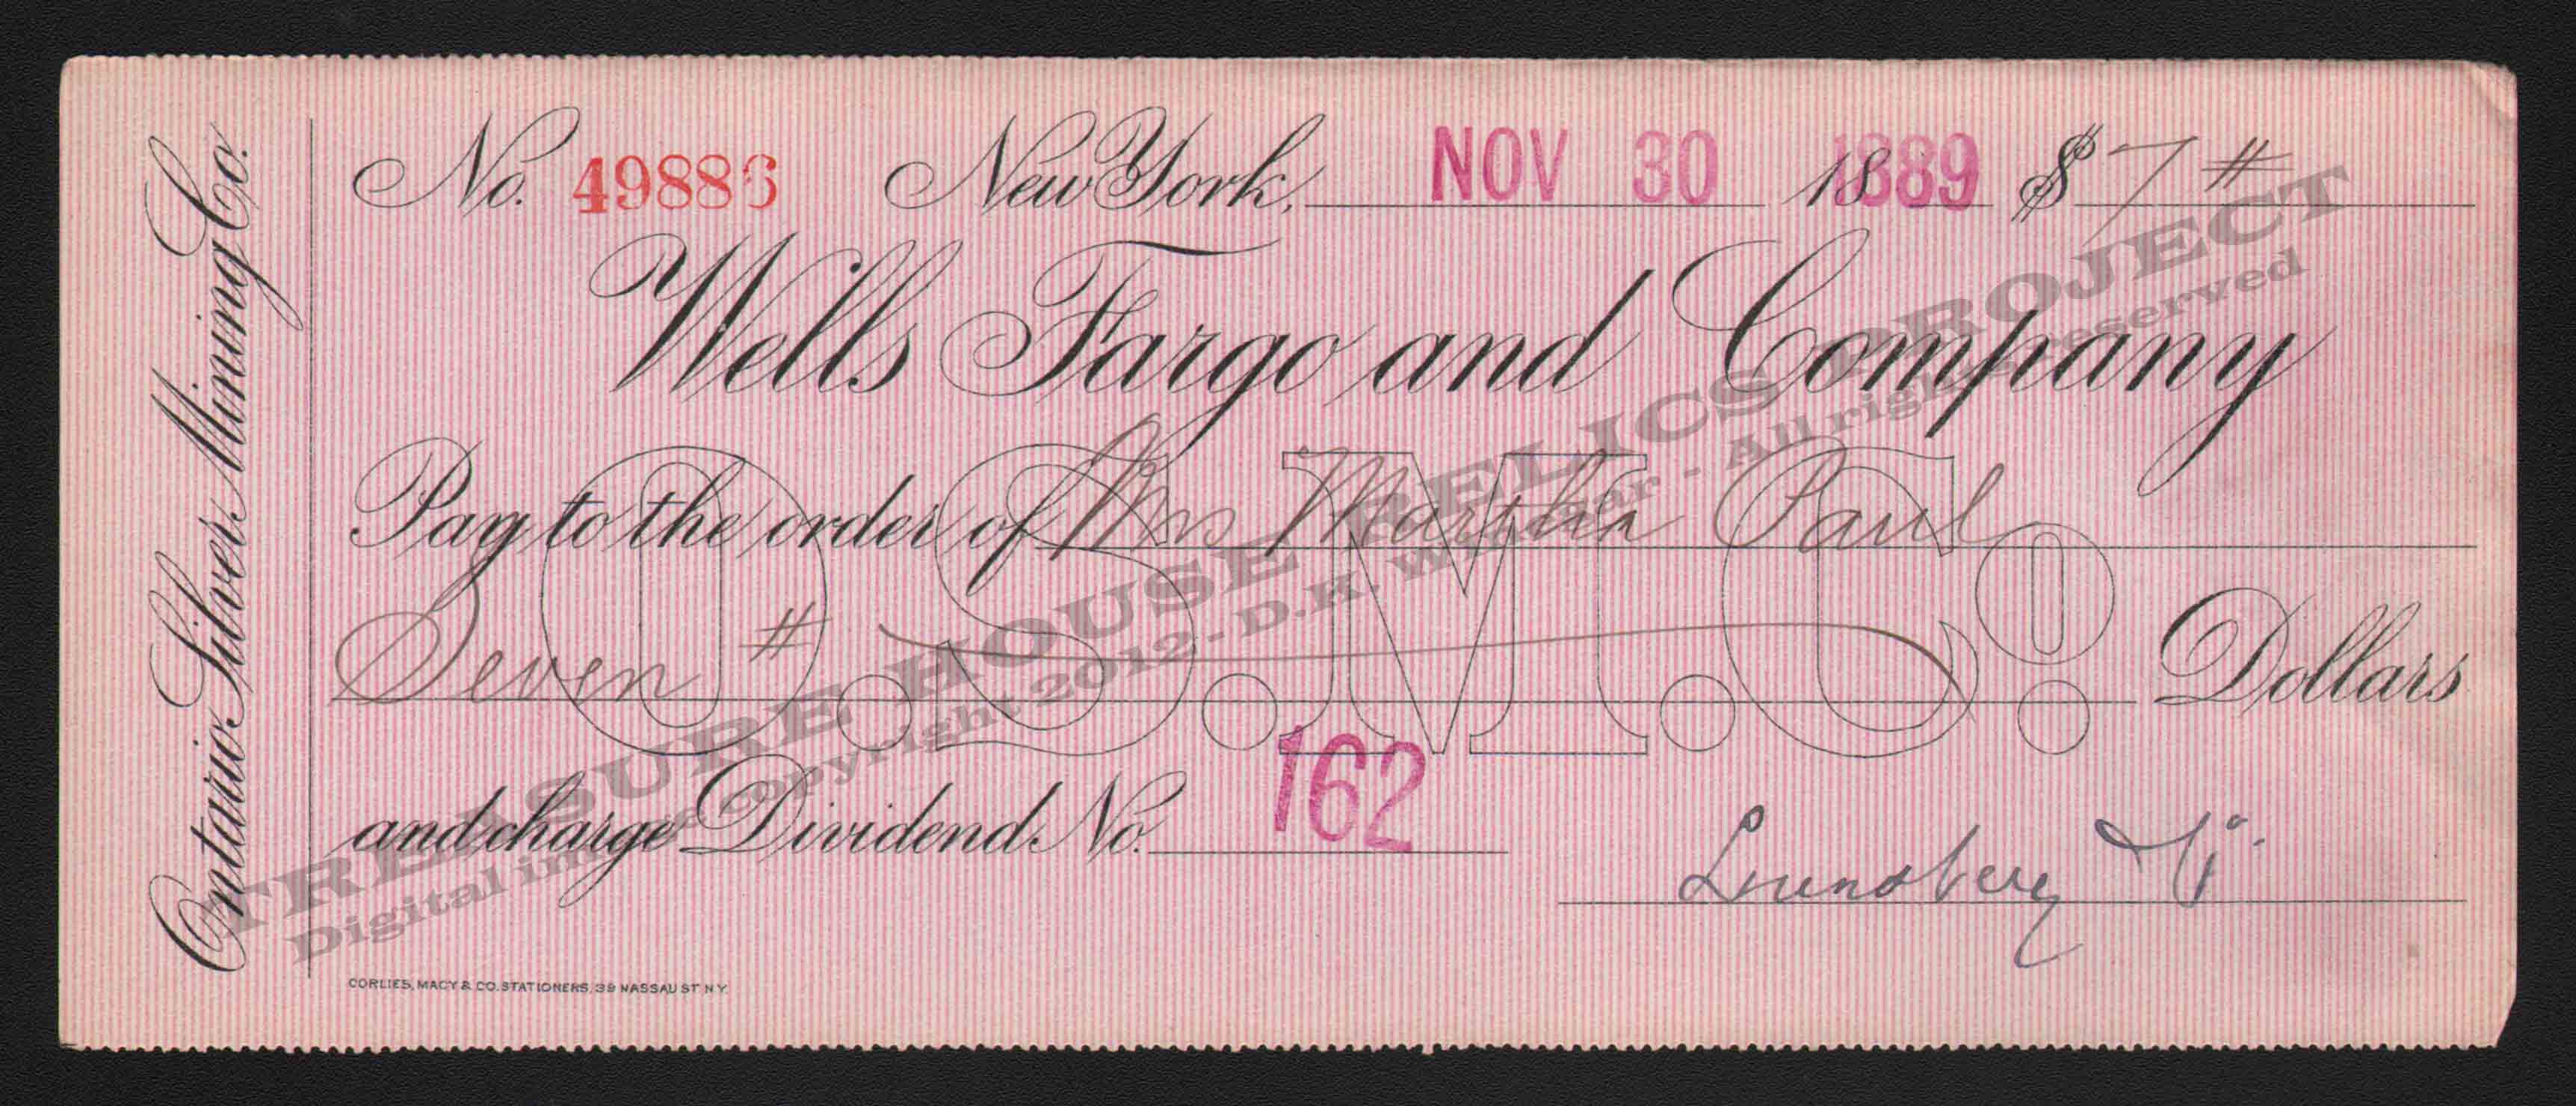 Ontario Silver Mining Co.
No. 49886 New York, NOV 30 18 1889 $ 7 #
Wells Fargo and Company
Pay to the order of Mrs Martha Paul
O.S.M.Co.
Seven # Dollars
and charge Dividend No. 162
Lounsbery
CORLIES, MACY & CO. STATIONERS, 39 NASSAU ST. N.Y.
TREASURE HOUSE RELICS PROJECT
Digital image copyright 2012 - D.K. Winegar - All rights reserved